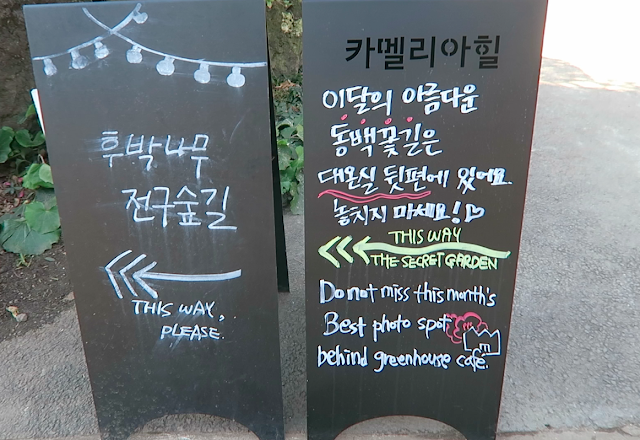 후박나무
전구숲길
THIS WAY,
PLEASE.
카멜리아힐
이달의 아름다운
동백꽃길은
대온실 뒷편에 있어요.
놓치지 마세요!♡
THIS WAY
THE SECRET GARDEN
Do not miss this month's
Best photo spot
behind greenhouse café.